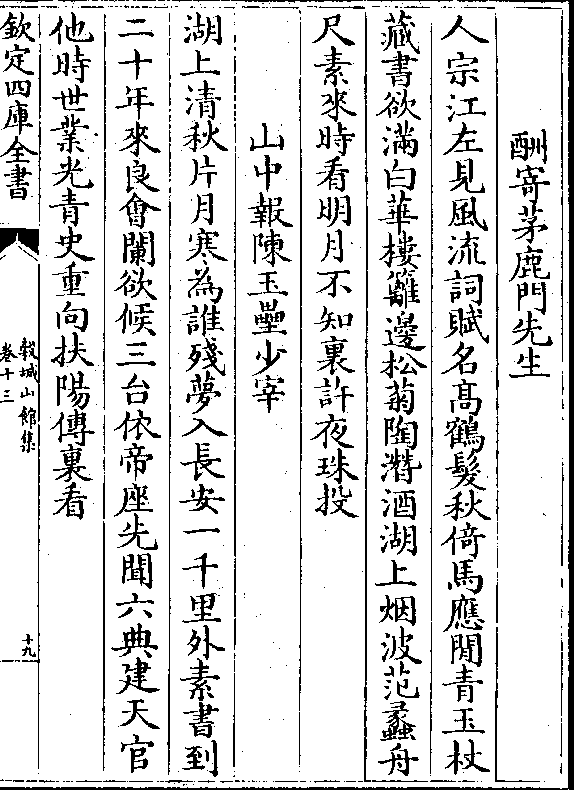 酬寄茅鹿門先生
人宗江左見風流詞賦名髙鶴髮秋倚馬應閒青玉杖
藏書欲滿白華樓籬邊松菊陶濳酒湖上烟波范蠡舟
尺素來時看明月不知裏許夜珠投
山中報陳玉壘少宰
湖上清秋片月寒為誰殘夢入長安一千里外素書到
二十年來良會闌欲候三台依帝座先聞六典建天官
他時世業光青史重向扶陽傳裏看
欽定四庫全書
榖城山館集
卷十三
十九